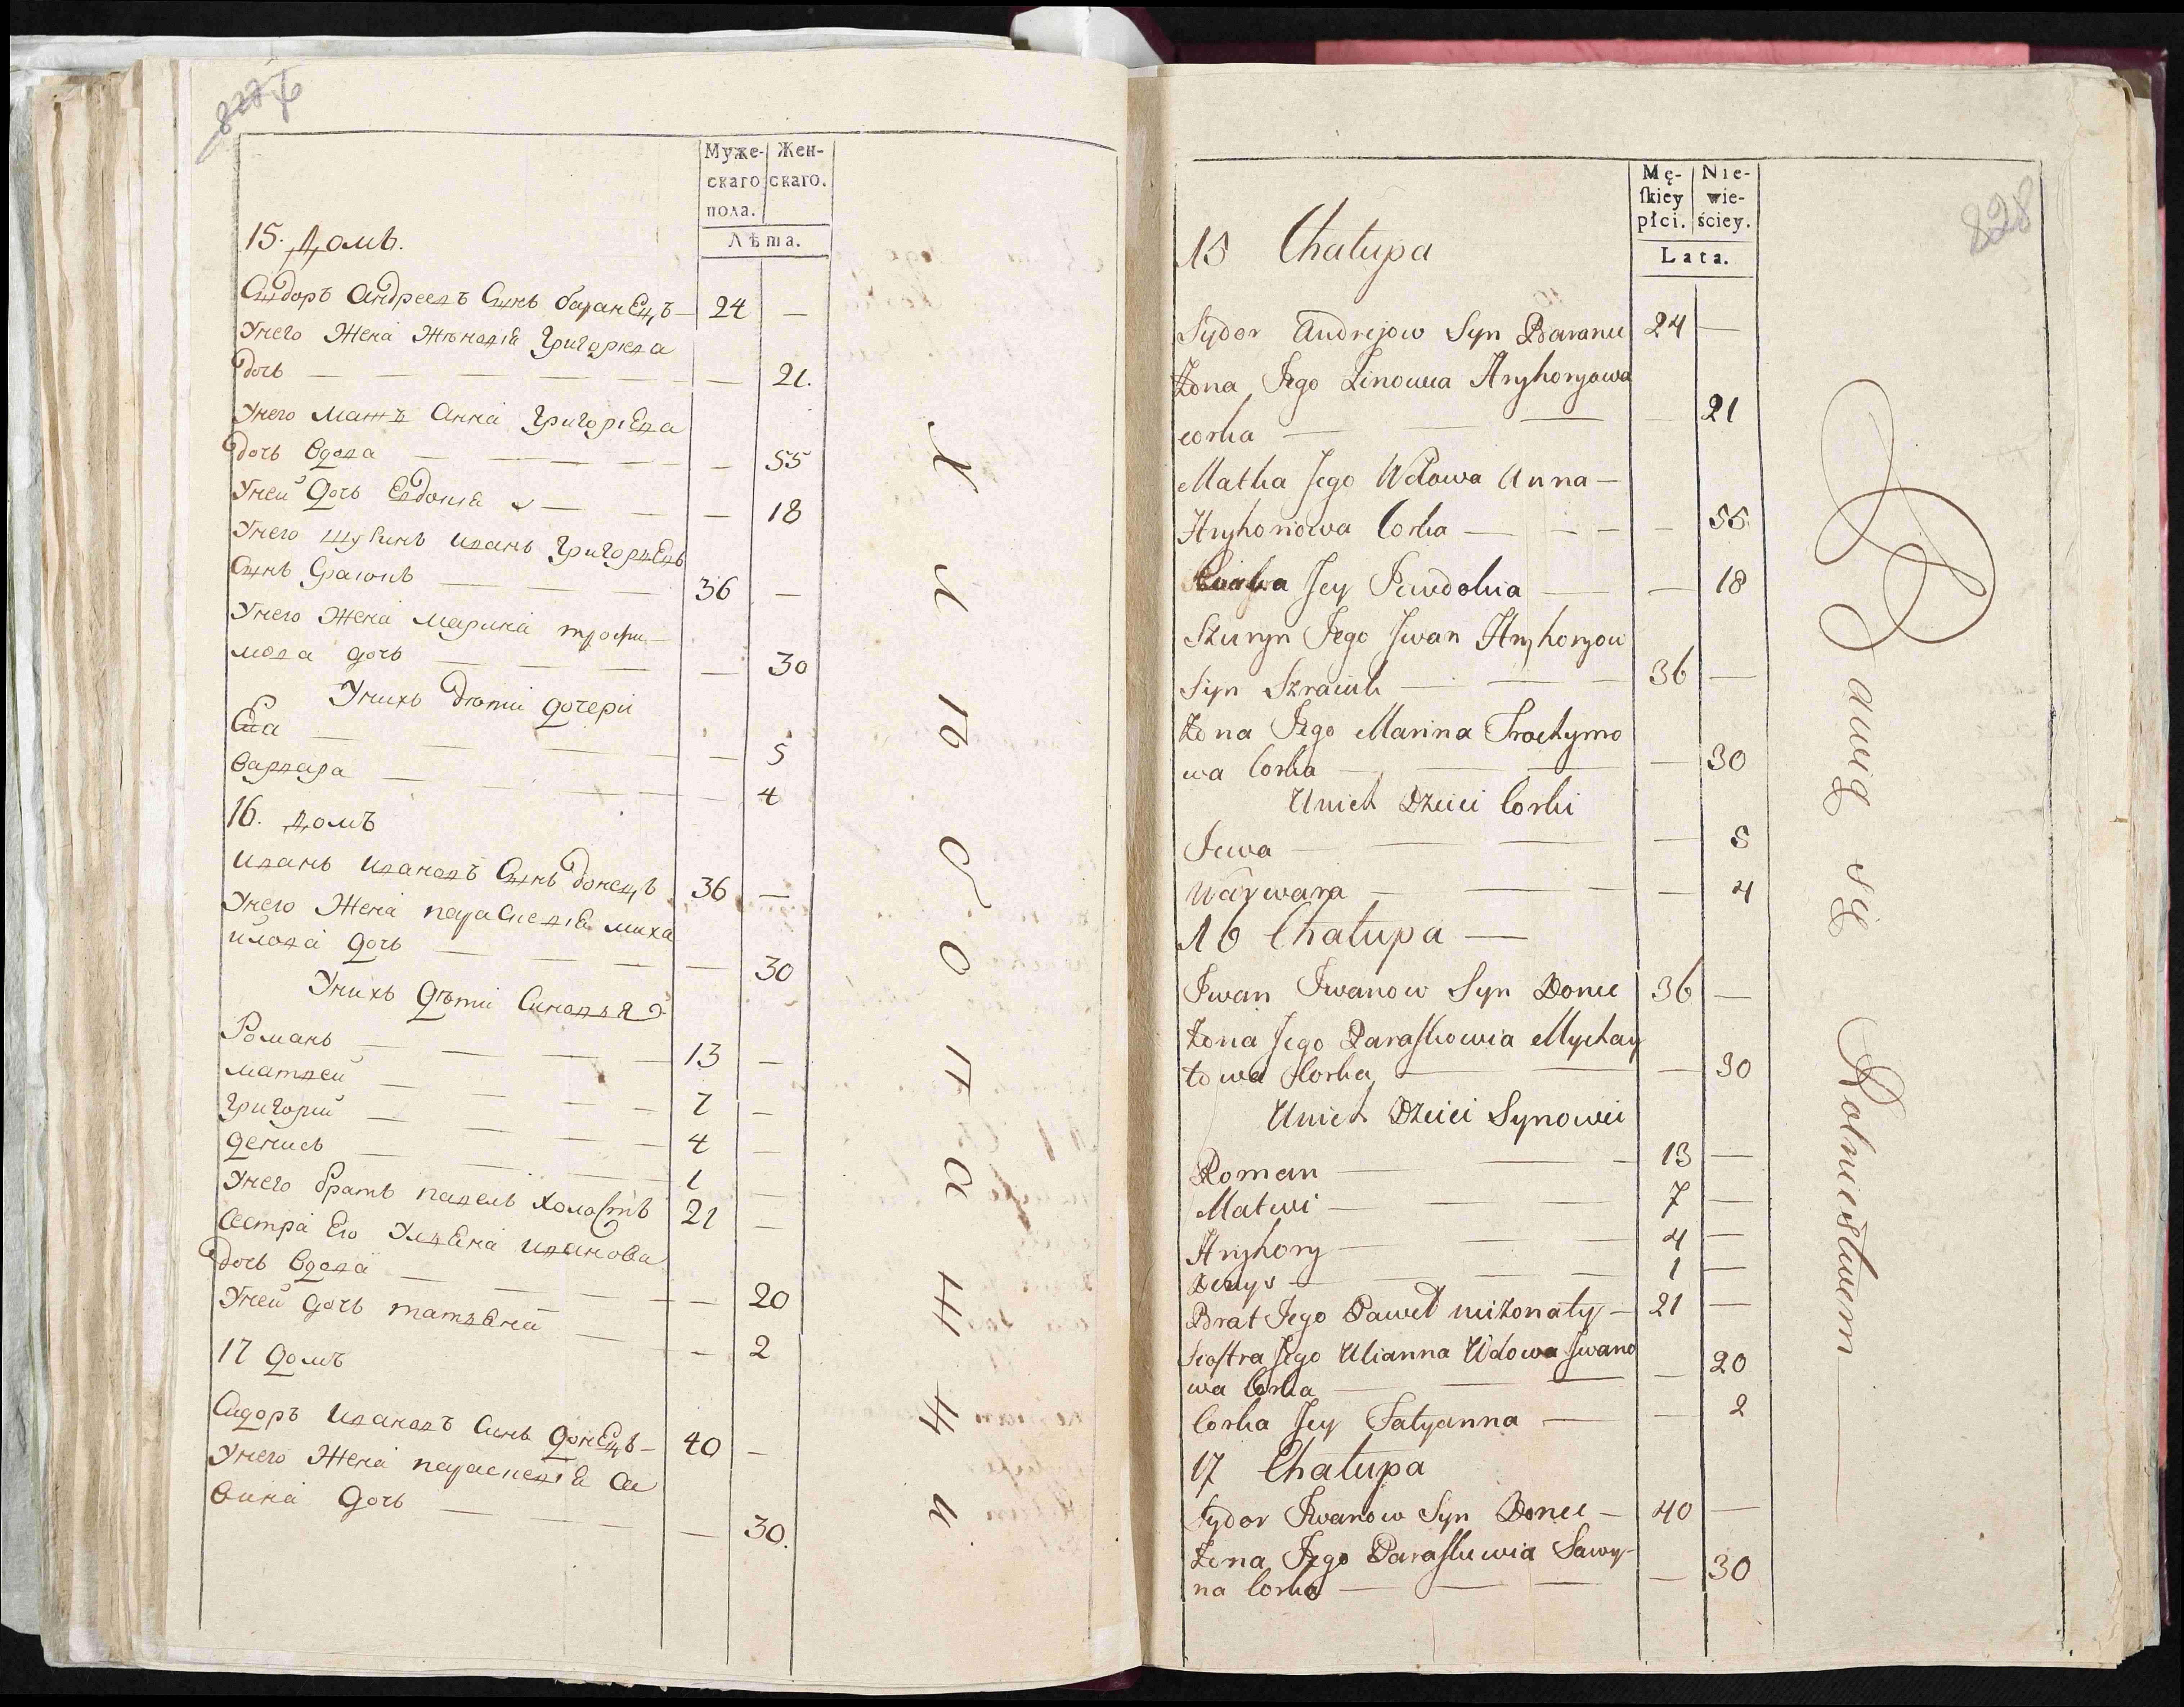 Муже- Жен-
скаго скаго.
пола.
Лѣта.
15. Домъ.
Сидоръ Андреевъ Синъ баранецъ — 24 —
Унего Жена Жѣновія Григориева
дочь — — — 21.
Унего Мать Анна Григориева
дочь Вдова — — — 55
Уней Дочь Евдокія — — — 18
Унего шуринъ Иванъ Григорьевъ
Синъ — 36 —
Унего Жена Марина трофи-
мова дочь — — — 30
Унихъ дѣти дочери
Ева — — — 5
Варвара — — — 4
16. Домъ
Иванъ Ивановъ Синъ донецъ 36 —
Унего Жена параскевія миха
илова дочь — — — 30
Унихъ дѣти Синовья
Романъ — — — 13 —
матвей — — — 7 —
Григорий — — — 4 —
денисъ — — — 1 —
Унего братъ павелъ холостъ 21 —
Сестра Его Ульяна иванова
дочь Вдова — — — 20
Уней дочь татьяна — — 2
17 домъ
Сидоръ Ивановъ Синъ донецъ — 40 —
Унего Жена параскевія са
вина дочь — — — 30.
828
Mę- Nie-
skiey wie-
płci. ściey.
Lata.
15 Chałupa
Sydor Andrejow Syn Baranec 24 —
Żona Jego Zinowia Hryhoryowa
corka — — — 21
Matka Jego Wdowa Anna —
Hryhoriowa Corka — — — 55
Jey Jewdokia — — 18
Szuryn Jego Jwan Hryhoryow
Syn — — 36 —
Żona Jego Marina Trochymo
wa Corka — — — 30
Unich Dzieci Corki
Jewa — — — 5
Warwara — — — 4
16 Chałupa —
Jwan Jwanow Syn Doniec 36 —
Żona Jego Paraskowia Mychay
łowa Corka — — — 30
Unich Dzieci Synowie
Roman — — — 13 —
Matwi — — — 7 —
Hryhory — — — 4 —
Denys — — — 1 —
Brat Jego Paweł nieżonaty — 21 —
Siostra Jego Ulianna Wdowa Jwano
wa Corka — — — 20
Corka Jey Tatyanna — — 2
17 Chałupa
Sydor Jwanow Syn Doniec — 40 —
Żona Jego Paraskiewia Sawy-
na Corka — — — 30
Bawią się Rolnictwem